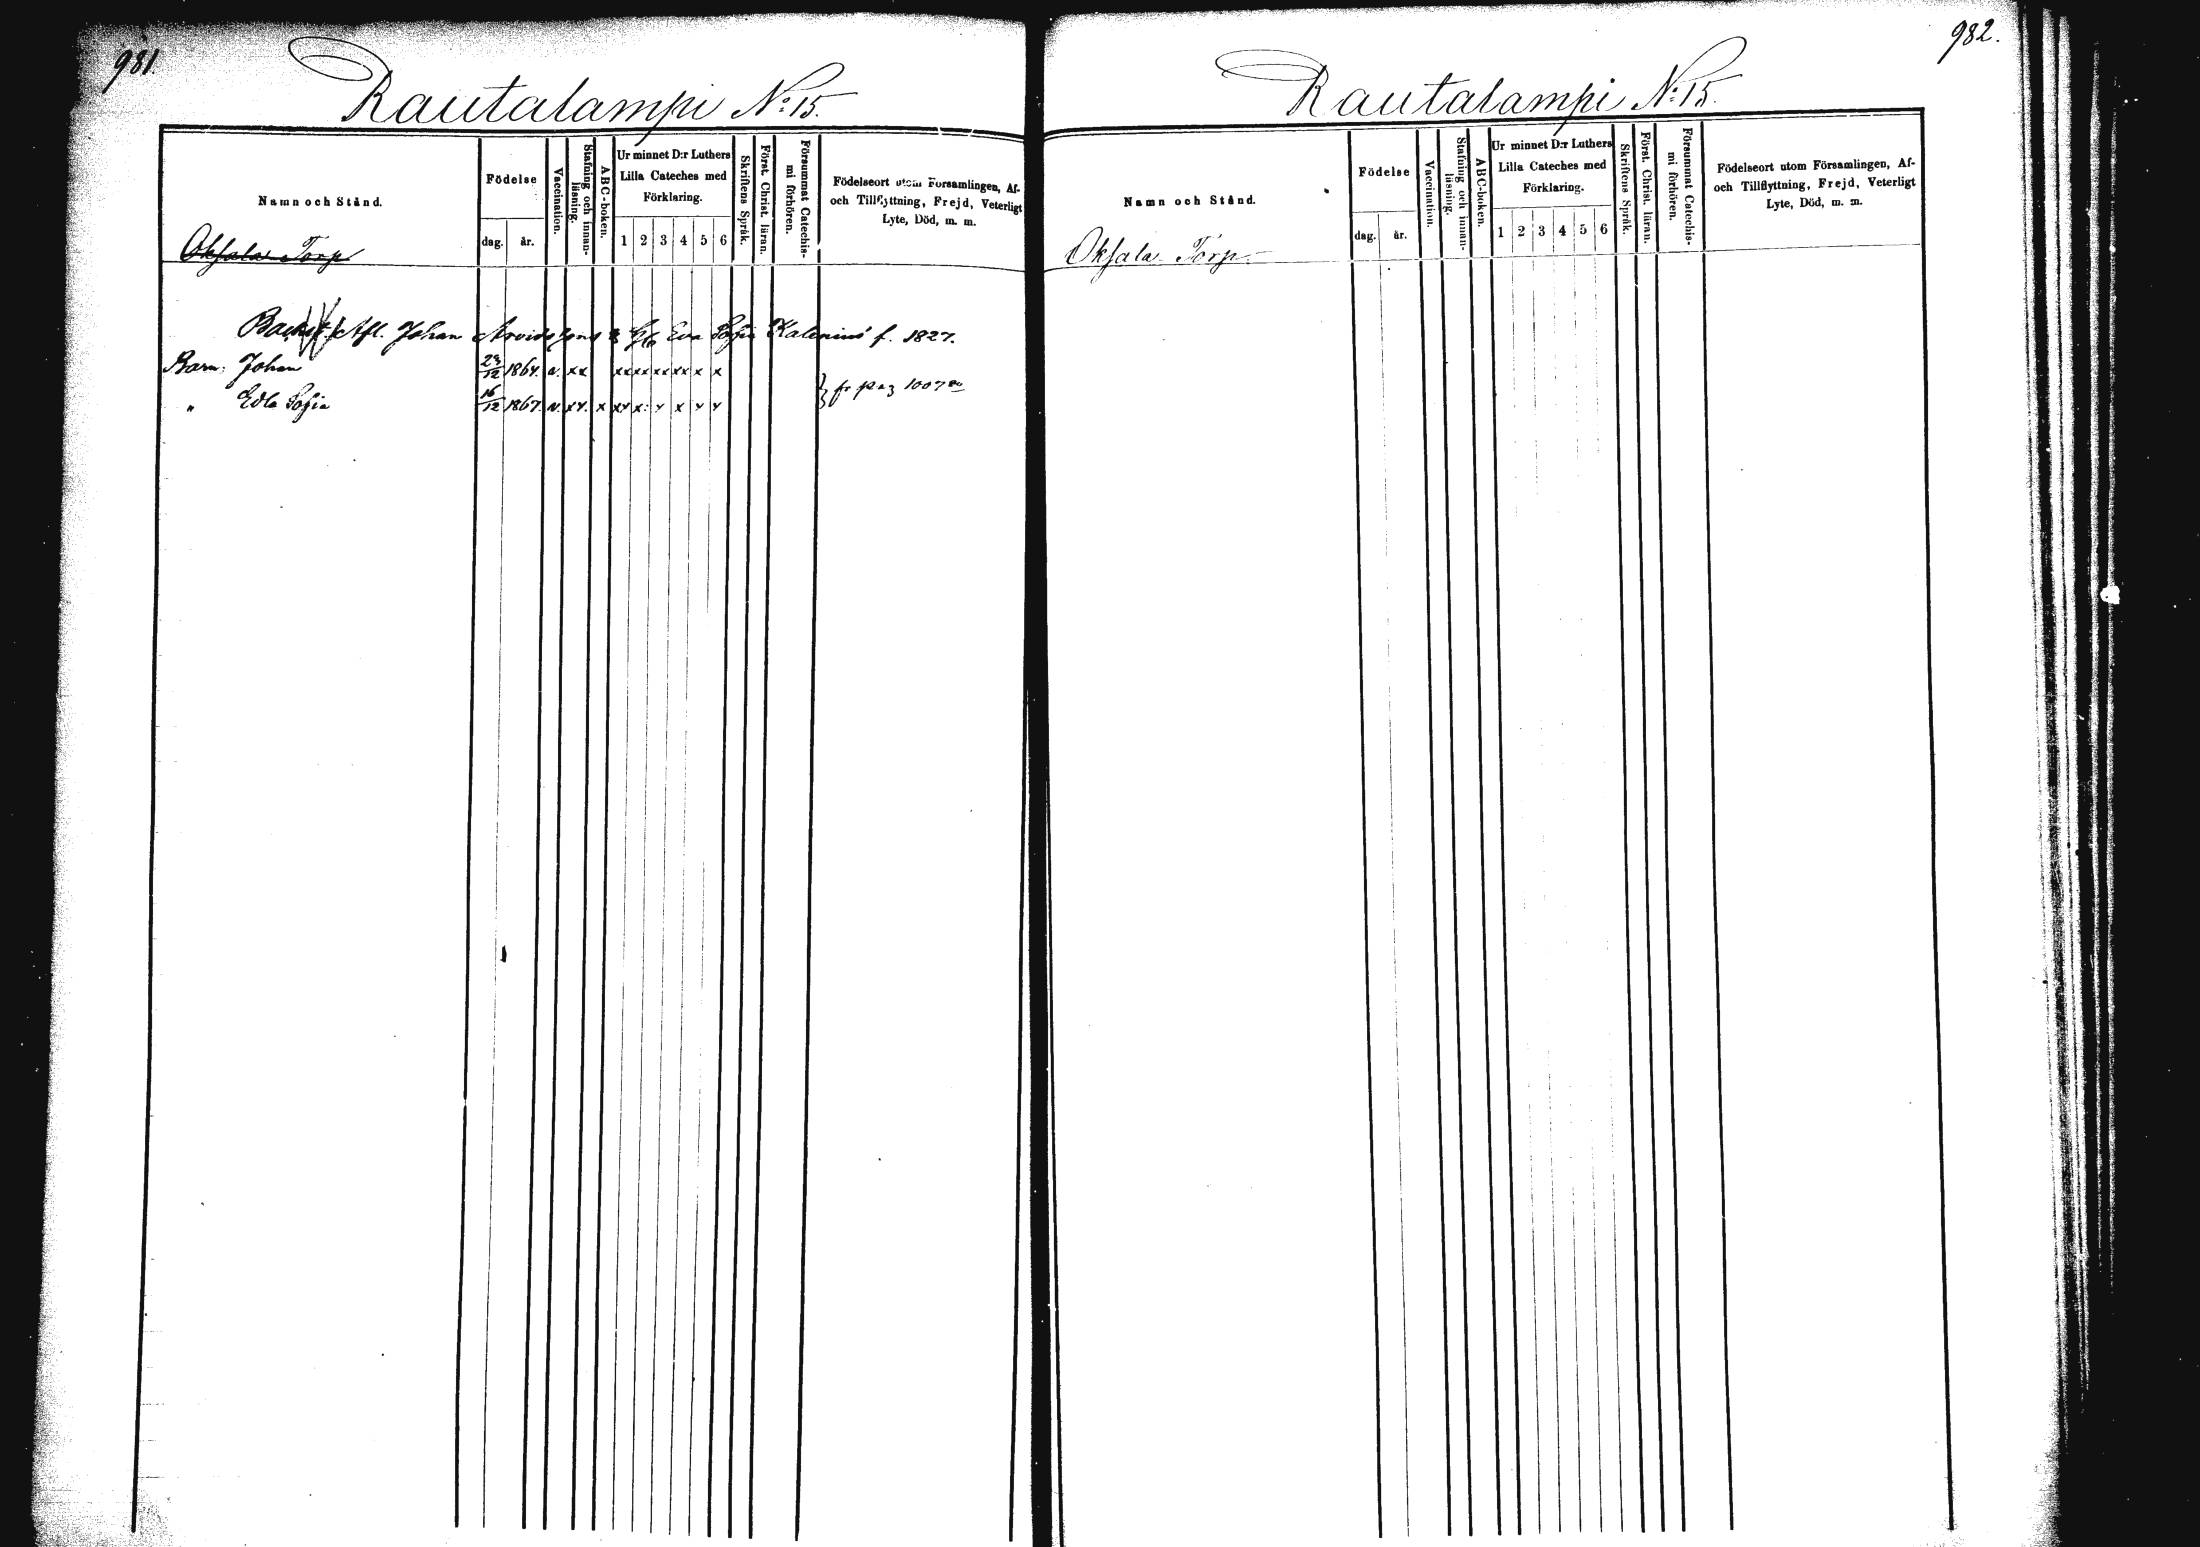 981.
Rautalampi No: 15.
Namn och Stånd.
Födelse
dag.
år.
Vaccination.
Stafning och innan-
läsning.
ABC-boken.
Ur minnet D:r Luthers
Lilla Cateches med
Förklaring.
1 2 3 4 5 6
Skriftens Språk.
Först. Christ. läran.
Försummat Catechis-
mi förhören.
Födelseort utom Församlingen, Af-
och Tillflyttning, Frejd, Veterligt
Lyte, Död, m. m.
Oksala Torp
Afl. Johan Arvidszons Eva Sofia Kalenius f. 1827.
Barn: Johan 23/12 1864. v. xx xx xx xx xx x x
" Edla Sofia 16/12 1867. v. xx. x xx x: x x x x
} fr pag 1007
982.
Rautalampi No: 15.
Namn och Stånd.
Födelse
dag.
år.
Vaccination.
Stafning och innan-
läsning.
ABC-boken.
Ur minnet D:r Luthers
Lilla Cateches med
Förklaring.
1 2 3 4 5 6
Skriftens Språk.
Först. Christ. läran.
Försummat Catechis-
mi förhören.
Födelseort utom Församlingen, Af-
och Tillflyttning, Frejd, Veterligt
Lyte, Död, m. m.
Oksala Torp.